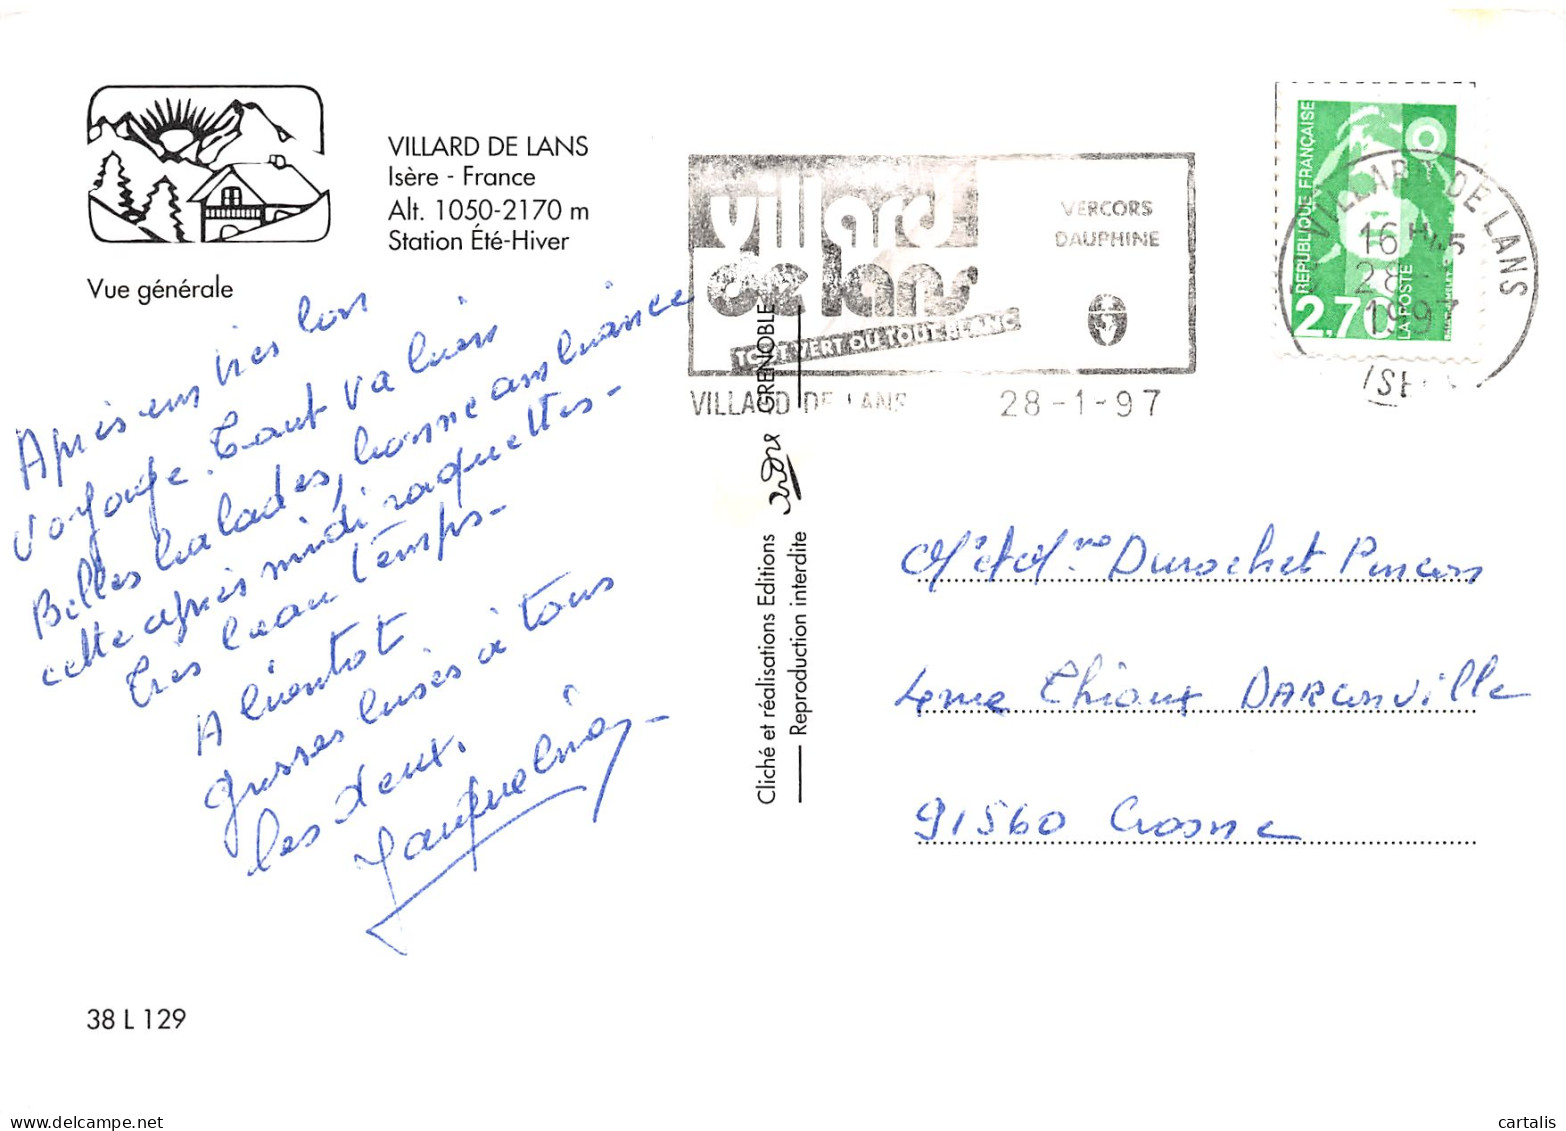 VILLARD DE LANS
Isère - France
Alt. 1050-2170 m
Station Été-Hiver
Vue générale
Après un très bon
voyage. Tout va bien
Belles balades, bonne ambiance
cette après midi raquettes-
Très beau temps-
A bientot
Grosses bises à tous
les deux.
Jacqueline
38 L 129
Cliché et réalisations Editions
GRENOBLE
Reproduction interdite
villard
de lans
TOUT VERT OU TOUT BLANC
VERCORS
DAUPHINE
VILLARD DE LANS 28-1-97
RÉPUBLIQUE FRANÇAISE
2,70
LA POSTE
VILLARD DE LANS
16 H 45
28
1997
ISÈRE
Mr et Mme Durochet
Darconville
91560 Crosne
cartalis